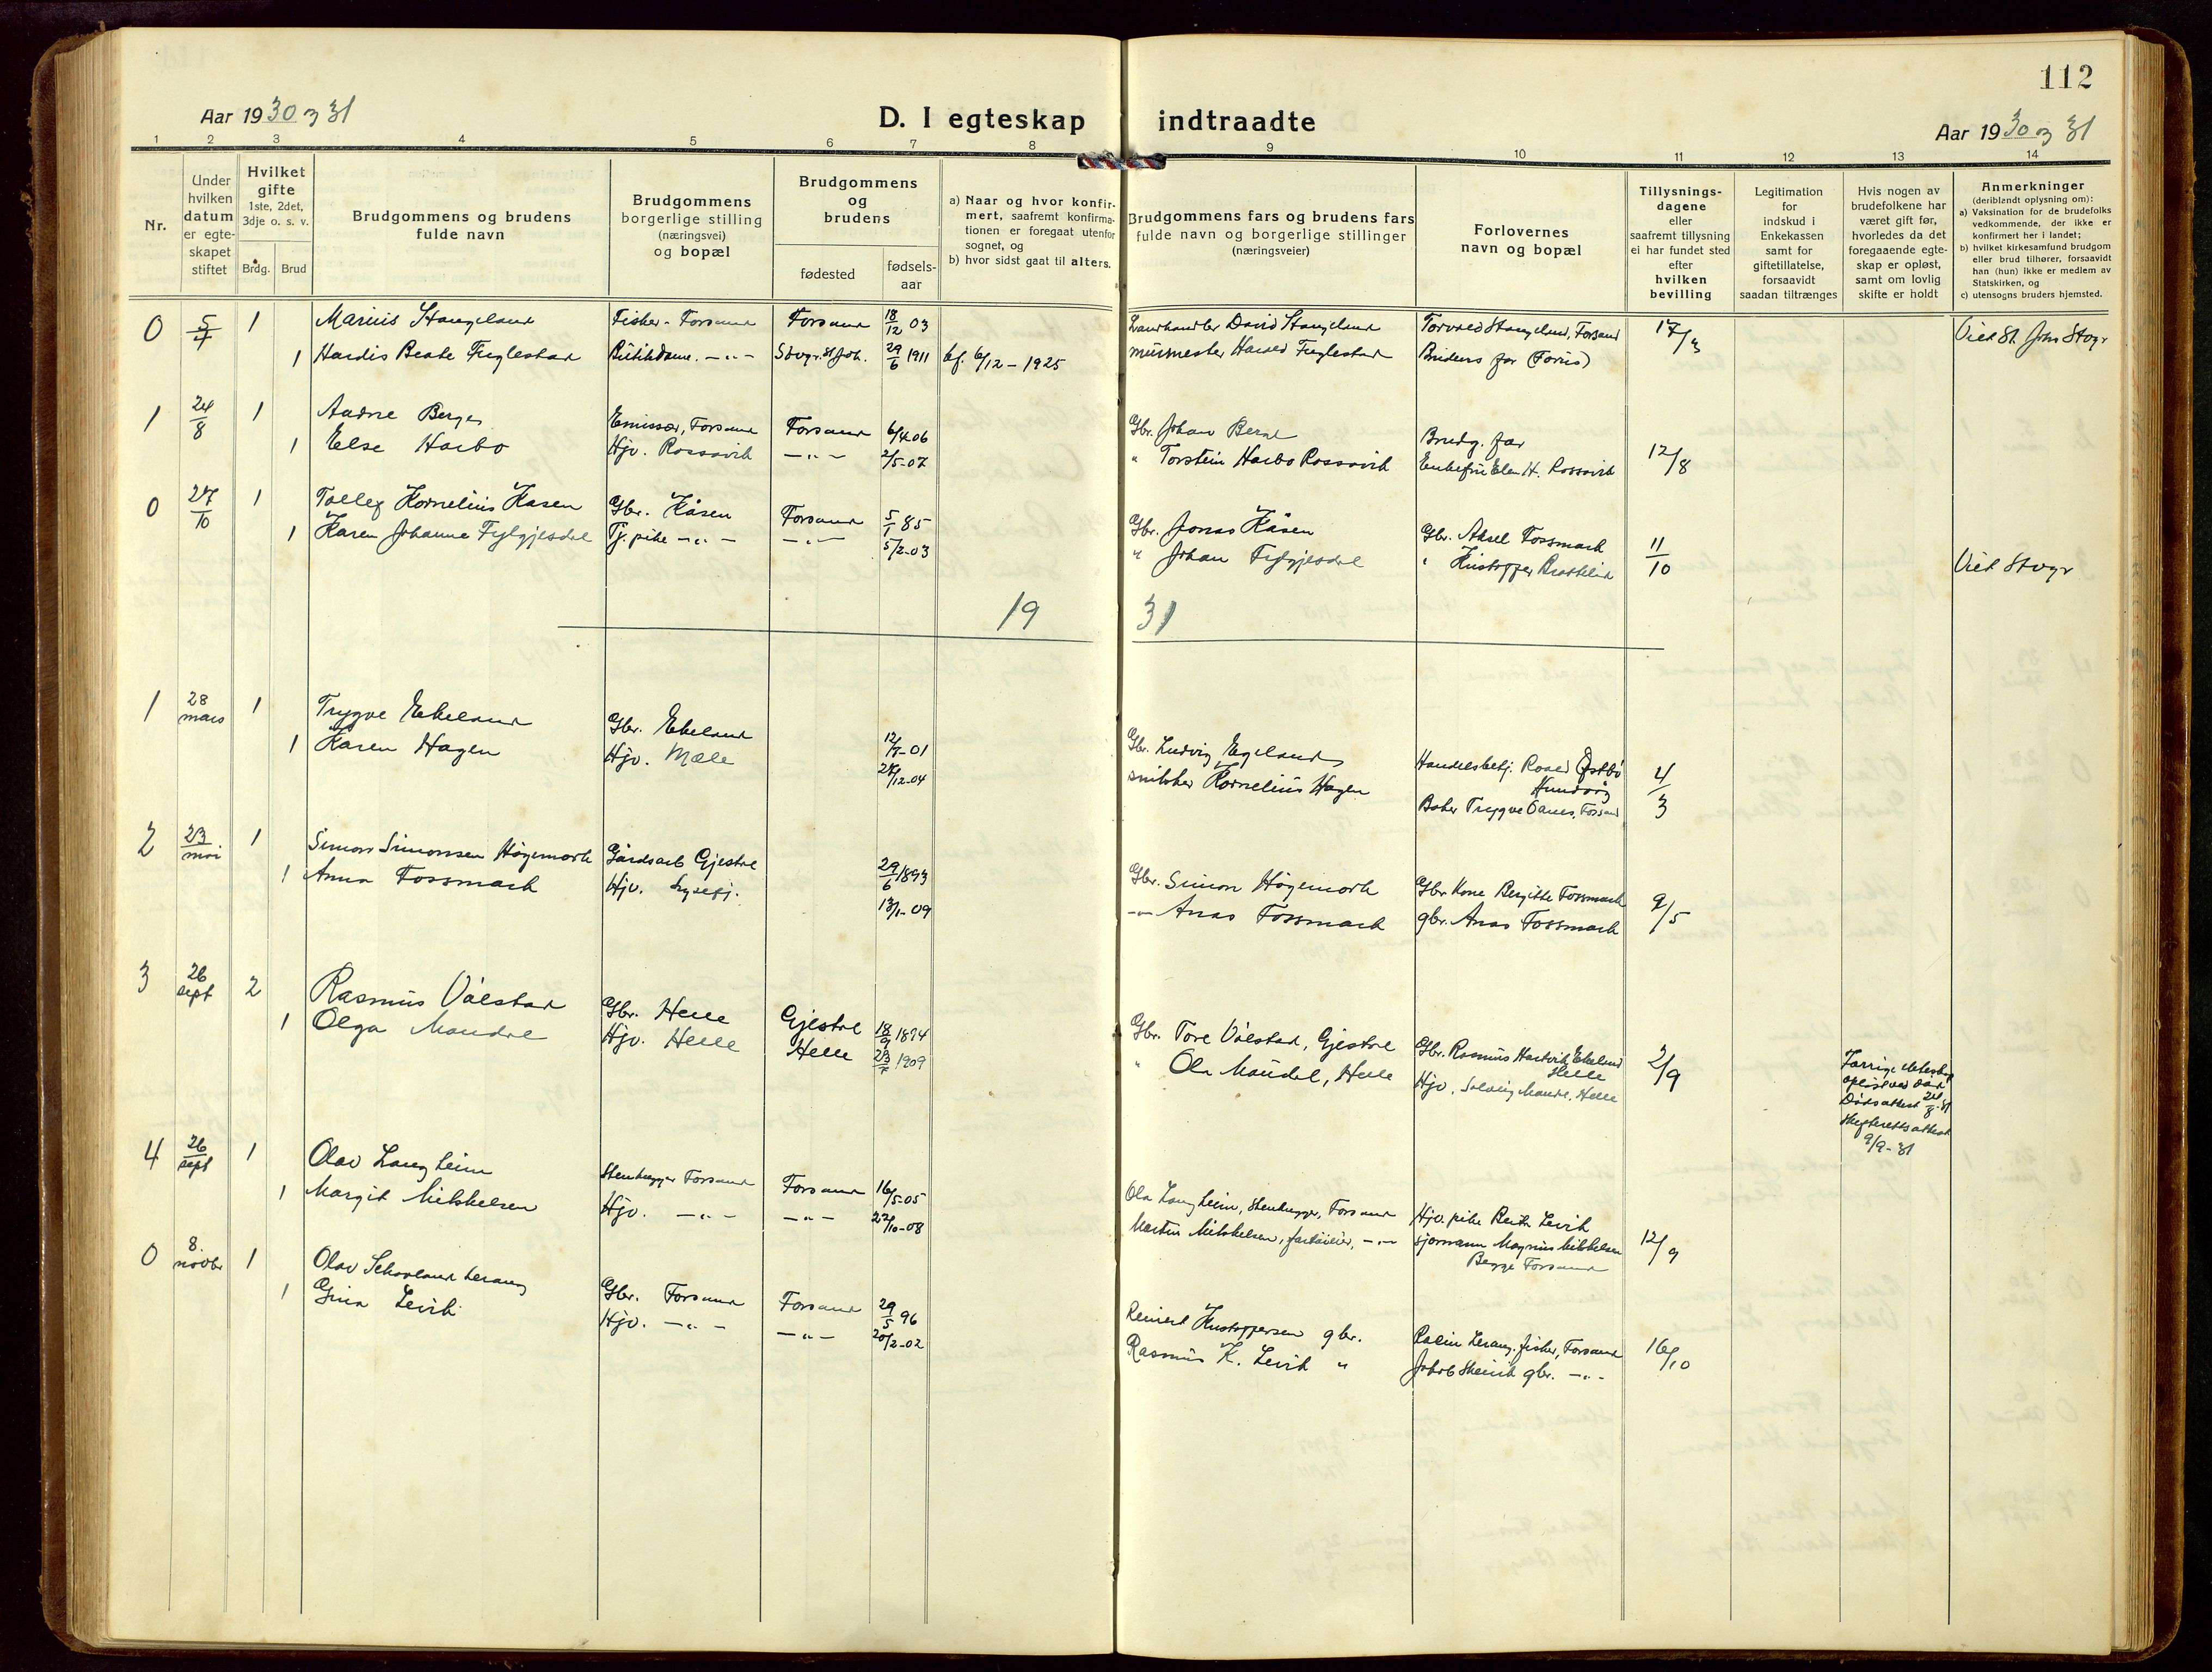 112
Aar 1930 og 31
D. I egteskap indtraadte
Aar 1930 og 31
1 2 3 4 5 6 7 8 9 10 11 12 13 14
Nr.
Under hvilken datum er egteskapet stiftet
Hvilket gifte 1ste, 2det, 3dje o. s. v.
Brdg. Brud
Brudgommens og brudens fulde navn
Brudgommens borgerlige stilling (næringsvei) og bopæl
Brudgommens og brudens
fødested
fødsels-aar
a) Naar og hvor konfirmert, saafremt konfirmationen er foregaat utenfor sognet, og
b) hvor sidst gaat til alters.
Brudgommens fars og brudens fars fulde navn og borgerlige stillinger (næringsveier)
Forlovernes navn og bopæl
Tillysnings-dagene eller saafremt tillysning ei har fundet sted efter hvilken bevilling
Legitimation for indskud i Enkekassen samt for giftetillatelse, forsaavidt saadan tiltrænges
Hvis nogen av brudefolkene har været gift før, hvorledes da det foregaaende egteskap er opløst, samt om lovlig skifte er holdt
Anmerkninger (deriblandt oplysning om):
a) Vaksination for de brudefolks vedkommende, der ikke er konfirmert her i landet;
b) hvilket kirkesamfund brudgom eller brud tilhører, forsaavidt han (hun) ikke er medlem av Statskirken, og
c) utensogns bruders hjemsted.
0 5/7 1 Marius Stangeland Fisker - Forsand Forsand 18/12 03 Landhandler David Stangeland Torvald Stangeland, Forsand 17/3 Viet St. Johs Stvgr
1 Hardis Beate Fuglestad Butikdame. -"- Stvgr. St Joh. 29/6 1911 kf. 6/12 - 1925 murmester Harald Fuglestad Brudens far (Forus)
1 24/8 1 Andre Berge Emissær, Forsand Forsand 6/4 06 Gbr. Johan Berge Brudg. far 12/8
1 Else Haebo Hjv. Rossavik -"- 2/5-07 " Torstein Haebo Rossavik Enkefru Elen H. Rossavik
0 27/10 1 Tollef Kornelius Kåsen Gbr. Kåsen Forsand 5/1 85 Gbr. Jonas Kåsen Gbr. Aksel Fossmark 11/10
1 Karen Johanne Fylgjesdal Tj. pike -"- -"- 5/2-03 " Johan Fylgjesdal " Kristoffer Brattelid Viet Stvgr
19 31
1 28 mars 1 Trygve Ekeland Gbr. Ekeland 12/7-01 Gbr. Ludvig Egeland Handelsbetj. Roald Østbø Hundvåg 4/3
1 Karen Hagen Hjv. Mæle 27/12-04 snikker Kornelius Hagen Baker Trygve Oanes, Forsand
2 23 mai 1 Simon Simonsen Høgemork Gårdsarb Gjestal 29/6 1893 Gbr. Simon Høgemork Gbr Kone Bergitte Fossmark 9/5
1 Anna Fossmark Hjv. Lysefj. 13/1-09 -"- Anas Fossmark gbr. Anas Fossmark
3 26 sept 2 Rasmus Vålestad Gbr. Helle Gjestal 18/9 1874 Gbr. Tore Vålestad, Gjestal Gbr. Rasmus Hartvik Ekeland Helle 2/9 Forrige ekteskap opløst ved død
1 Olga Maudal Hjv. Helle Helle 1909 " Ola Maudal, Helle Hjv. Solveig Maudal, Helle Dødsattest 24/8-31
Skifterettsattest 9/9-31
4 26 sept 1 Olav Langheim Stenhugger Forsand Forsand 16/5-05 Ola Langheim, Stenhugger, Forsand Hjv. pike Berta Levik 12/9
1 Margit Mikkelsen Hjv. -"- -"- 27/10-08 Martin Mikkelsen, fartøieier, -"- sjømann Magnus Mikkelsen
Begge Forsand
0 8. novbr 1 Olav Skavland Lerang Gbr. Forsand Forsand 29/5 96 Reinert Kristoffersen gbr. Lerang, fisker, Forsand 16/10
1 Gina Levik Hjv. -"- -"- 20/2-02 Rasmus K. Levik " Jakob Skeivik gbr. -"-